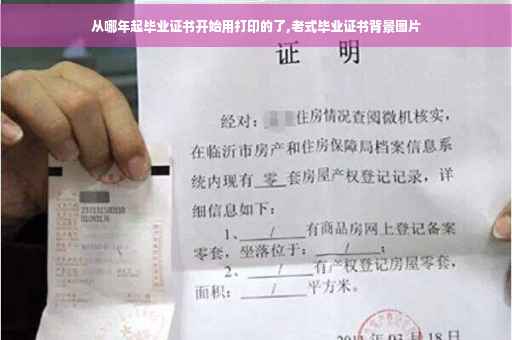 从哪年起毕业证书开始用打印的了,老式毕业证书背景图片
证 明
经对: 住房情况查阅微机核实,
在临沂市房产和住房保障局档案信息系
统内现有 零 套房屋产权登记记录,详
细信息如下:
1、 / 有商品房网上登记备案
零套,坐落位于: / ;
2、 / 有产权登记房屋零套,
面积: / 平方米。
03月18日